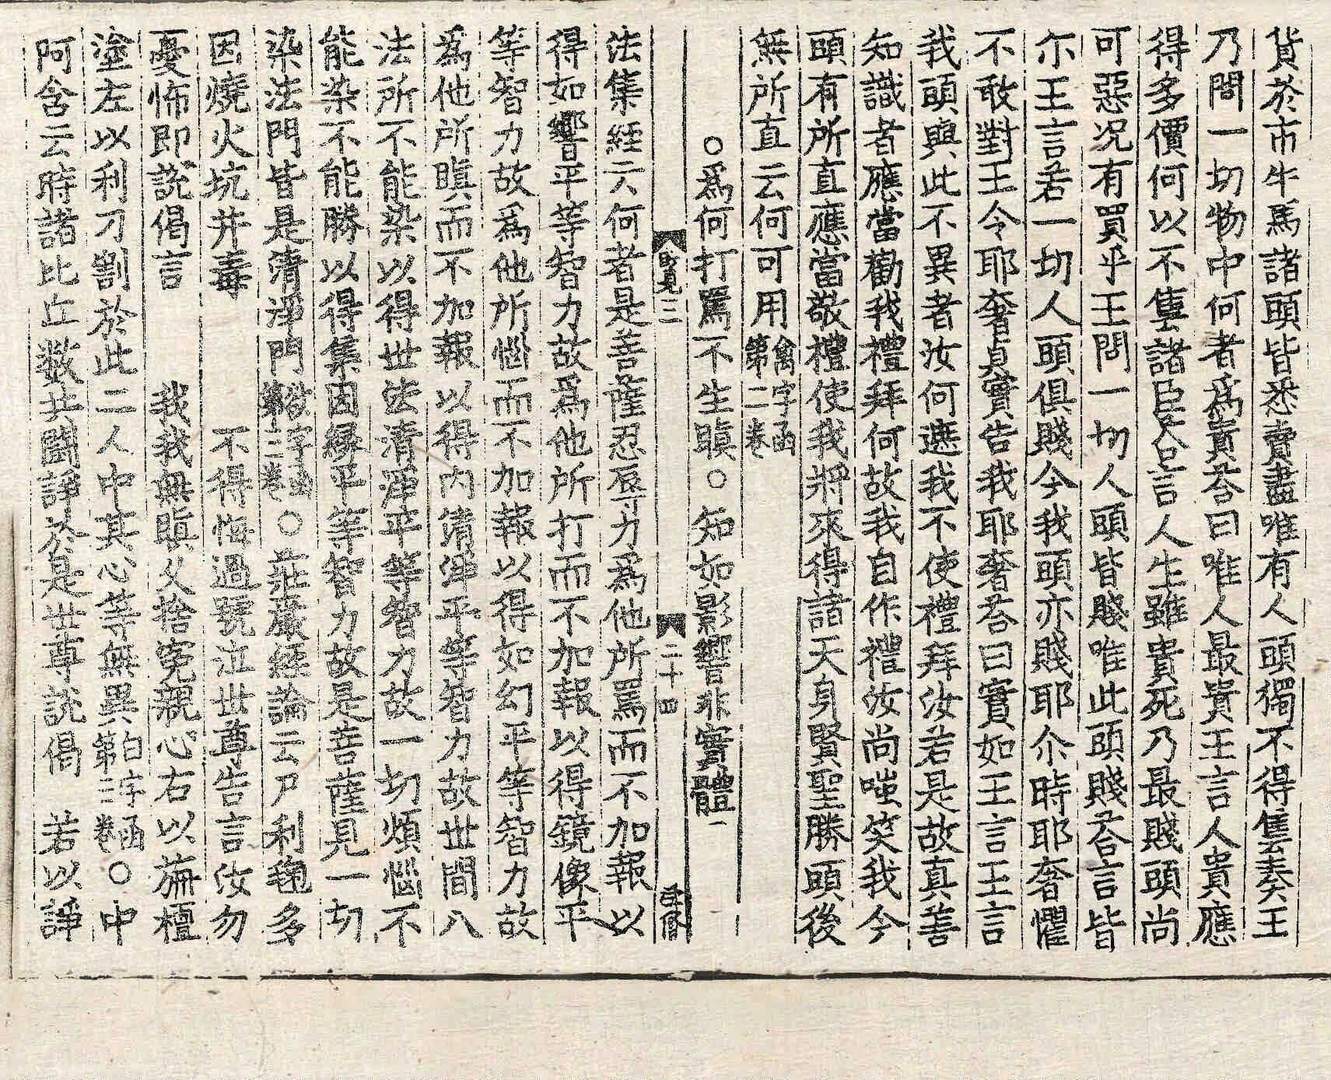 貨於市牛馬諸頭皆悉賣盡唯有人頭獨不得售奏王
乃問一切物中何者為貴荅曰唯人最貴王言人貴應
得多價何以不售諸臣荅言人生雖貴死乃最賤頭尚
可惡况有買乎王問一切人頭皆賤唯此頭賤荅言皆
尒王言若一切人頭俱賤今我頭亦賤耶尒時耶奢懼
不敢對王令耶奢真實告我耶奢荅曰實如王言王言
我頭與此不異者汝何遮我不使禮拜汝若是故真善
知識者應當勸我禮拜何故我自作禮汝尚嗤笑我今
頭有所直應當敬禮使我將來得諸天身賢聖勝頭後
無所直云何可用禽字函第二卷
○為何打罵不生瞋○知如影響非實體一
三 二十四
法集經六何者是菩薩忍辱力為他所罵而不加報以
得如響平等智力故為他所打而不加報以得鏡像平
等智力故為他所惱而不加報以得如幻平等智力故
為他所瞋而不加報以得內清淨平等智力故世間八
法所不能染以得世法清淨平等智力故一切煩惱不
能染不能勝以得集因緣平等智力故是菩薩見一切
染法門皆是清淨門欲字函第三卷○莊嚴經論云尸利毱多
因燒火坑并毒 不得悔過號泣世尊告言汝勿
憂怖即說偈言 我我無瞋久捨冤親心右以旃檀
塗左以利刀割於此二人中其心等無異白字函第三卷○中
阿含云時諸比丘数共鬪諍於是世尊說偈 若以諍